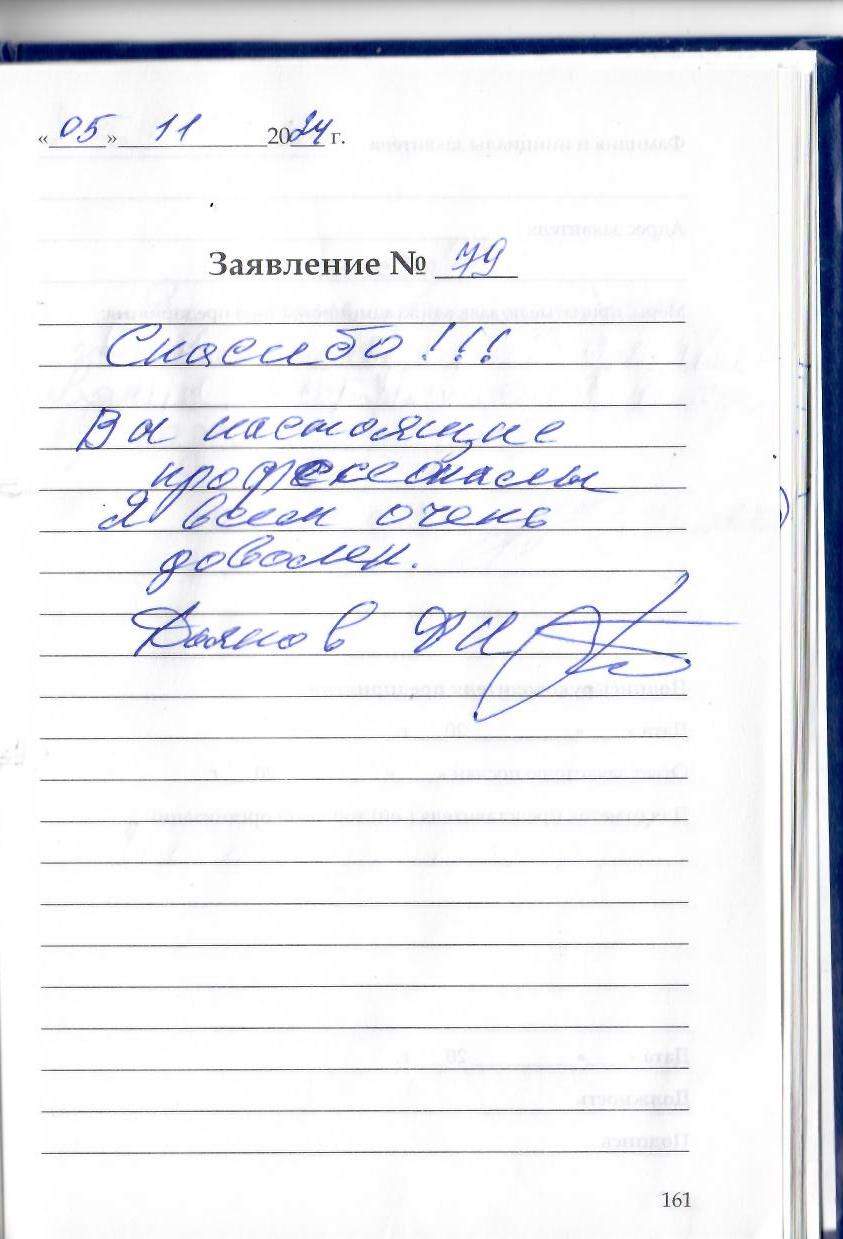 «05» 11 2024 г.
Заявление № 79
Спасибо!!!
Вы настоящие
професионалы
Я всем очень
доволен.
161